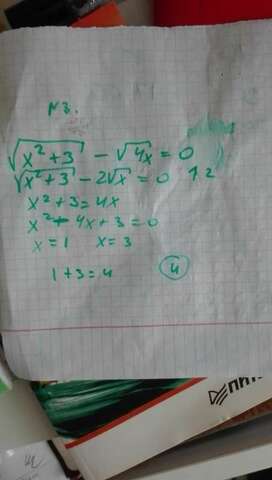 №3.
√(x² + 3) - √4x = 0
√(x² + 3) - 2√x = 0 1.2
x² + 3 = 4x
x² - 4x + 3 = 0
x = 1 x = 3
1 + 3 = 4 4